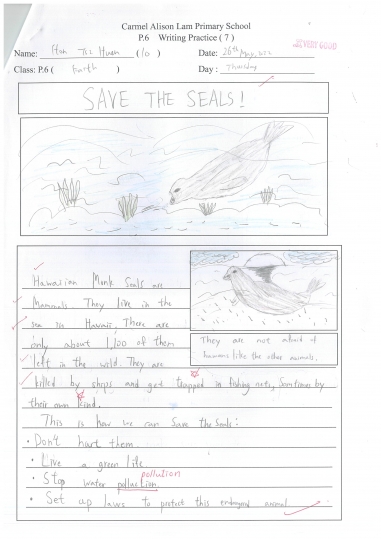 Carmel Alison Lam Primary School
P.6 Writing Practice ( 7 )
VERY GOOD
Name: Tsz Huen (10) Date: 26th May,
Class: P.6 ( Faith ) Day : Thursday
SAVE THE SEALS!
Hawaiian Monk Seals are
Mammals They live in the
sea in Hawaii, There are
only about 1,100 of them
left in the wild. They are
killed by ships and get trapped in fishing nets, Somtimes by
their own kind.
They are not afraid of
humans like the other animals.
This is how we can save the seals:
• Don't hurt them.
• Live a green life.
pollution
• Stop water polluction.
• Set up laws to protect this animal